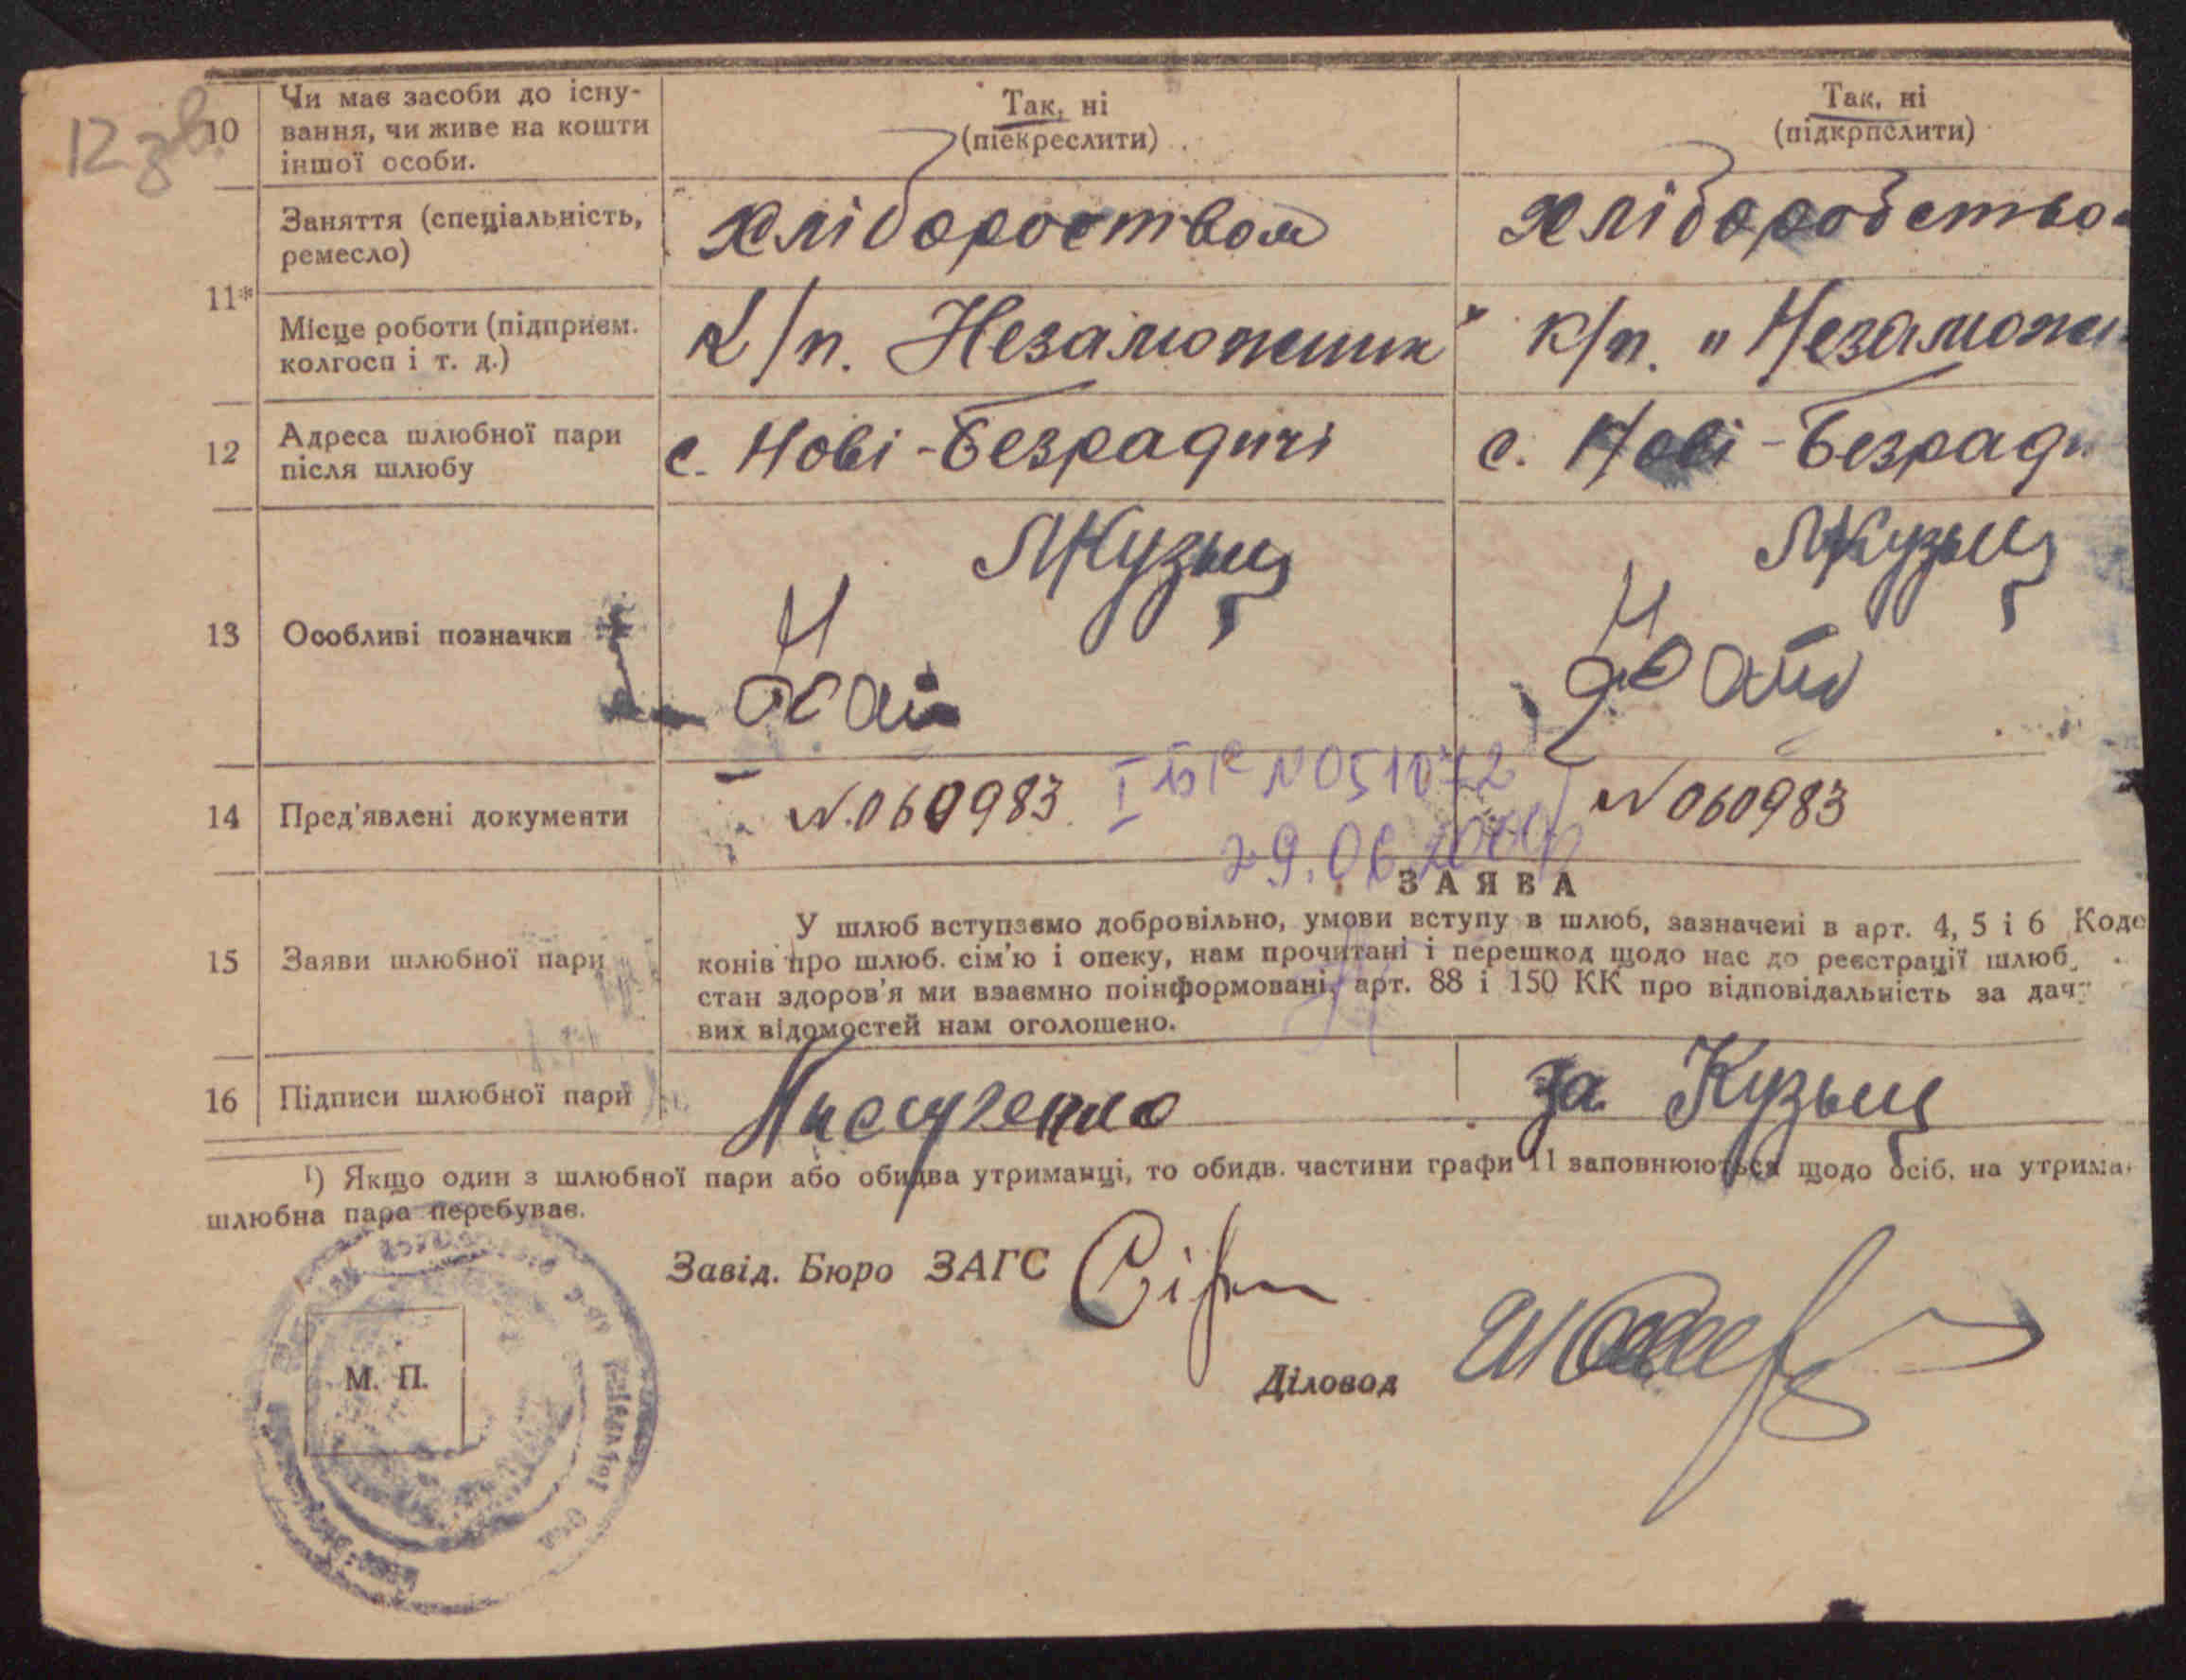 12 зв.
10 Чи має засоби до існу-
вання, чи живе на кошти
іншої особи.
Так, ні
(піекреслити)
Так, ні
(підкрпслити)
11*
Заняття (спеціальність,
ремесло)
хлібороством
хліборобство
Місце роботи (підприєм.
колгосп і т. д.)
к/п. Незаможник
к/п. „Незаможн
12 Адреса шлюбної пари
після шлюбу
с. Нові-Безрадичі
с. Нові-Безради
13 Особливі позначки
14 Пред'явлені документи
N.060983
N 060983
I БК N051072
29.06.
ЗАЯВА
15 Заяви шлюбної пари
У шлюб вступаємо добровільно, умови вступу в шлюб, зазначені в арт. 4, 5 і 6 Коде
конів про шлюб. сім'ю і опеку, нам прочитані і перешкод щодо нас до реєстрації шлюб
стан здоров'я ми взаємно поінформовані, арт. 88 і 150 КК про відповідальність за дач
вих відомостей нам оголошено.
16 Підписи шлюбної пари
за Кузьец
¹) Якщо один з шлюбної пари або обидва утриманці, то обидв. частини графи 11 заповнюються щодо осіб, на утрима
шлюбна пара перебуває.
Завід. Бюро ЗАГС
М. П.
Діловод